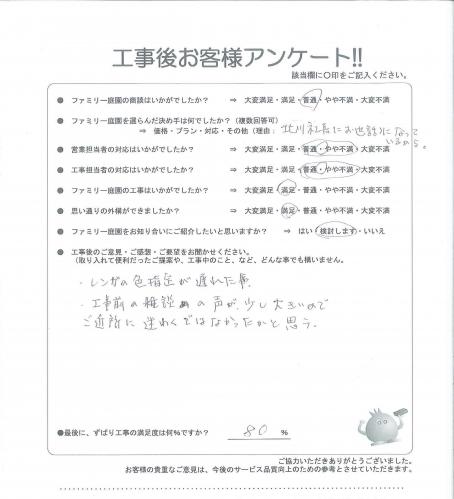 工事後お客様アンケート!!
該当欄に○印をご記入ください。
● ファミリー庭園の商談はいかがでしたか? ⇒ 大変満足・満足・普通・やや不満・大変不満
● ファミリー庭園を選らんだ決め手は何でしたか?（複数回答可）
⇒ 価格・プラン・対応・その他（理由： 北川社長にお世話になって
いるから。
● 営業担当者の対応はいかがでしたか? ⇒ 大変満足・満足・普通・やや不満・大変不満
● 工事担当者の対応はいかがでしたか? ⇒ 大変満足・満足・普通・やや不満・大変不満
● ファミリー庭園の工事はいかがでしたか? ⇒ 大変満足・満足・普通・やや不満・大変不満
● 思い通りの外構ができましたか? ⇒ 大変満足・満足・普通・やや不満・大変不満
● ファミリー庭園をお知り合いにご紹介したいと思いますか? ⇒ はい・検討します・いいえ
● 工事後のご意見・ご感想・ご要望をお聞かせください。
（取り入れて便利だったご提案や、工事中のこと、など、どんな事でも構いません。
・レンガの色指定が遅れた事。
・工事前の雑談の声が、少し大きいので
ご近所に迷わくではなかったかと思う。
●最後に、ずばり工事の満足度は何%ですか? 80 %
ご協力いただきありがとうございました。
お客様の貴重なご意見は、今後のサービス品質向上のための参考とさせていただきます。